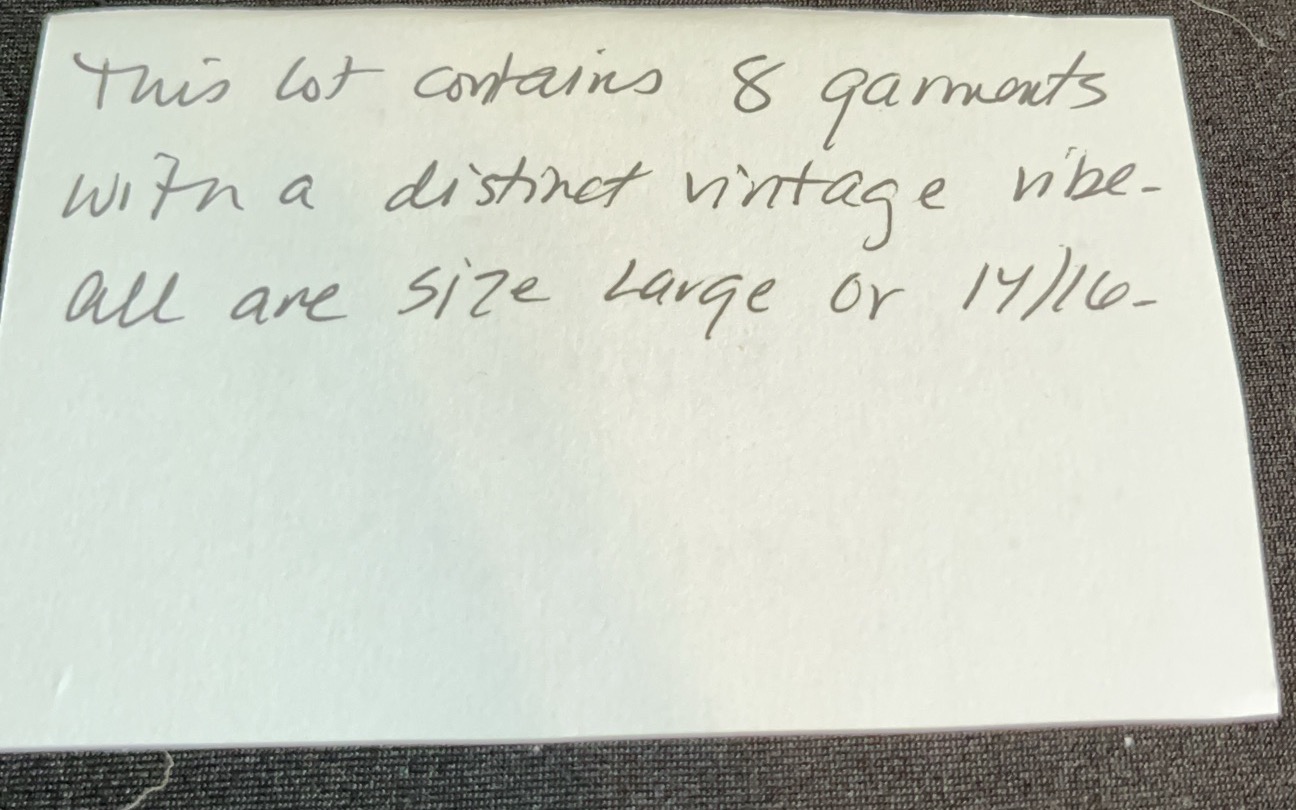 This lot contains 8 garments
with a distinct vintage vibe-
all are size Large or 14/16-